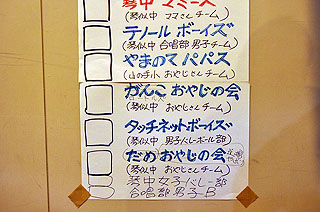 琴中 マミーズ
(琴似中 ママさんチーム)
テノール ボーイズ
(琴似中 合唱部 男子チーム)
やまのて パパス
(山の手小 おやじさんチーム)
がんこ おやじの会
(琴似中 おやじさんチーム)
タッチネットボーイズ
(琴似中 男子バレーボール部)
だめ おやじの会
(琴似中 おやじさんチーム)
琴中女子バレー部
合唱部 男子-B